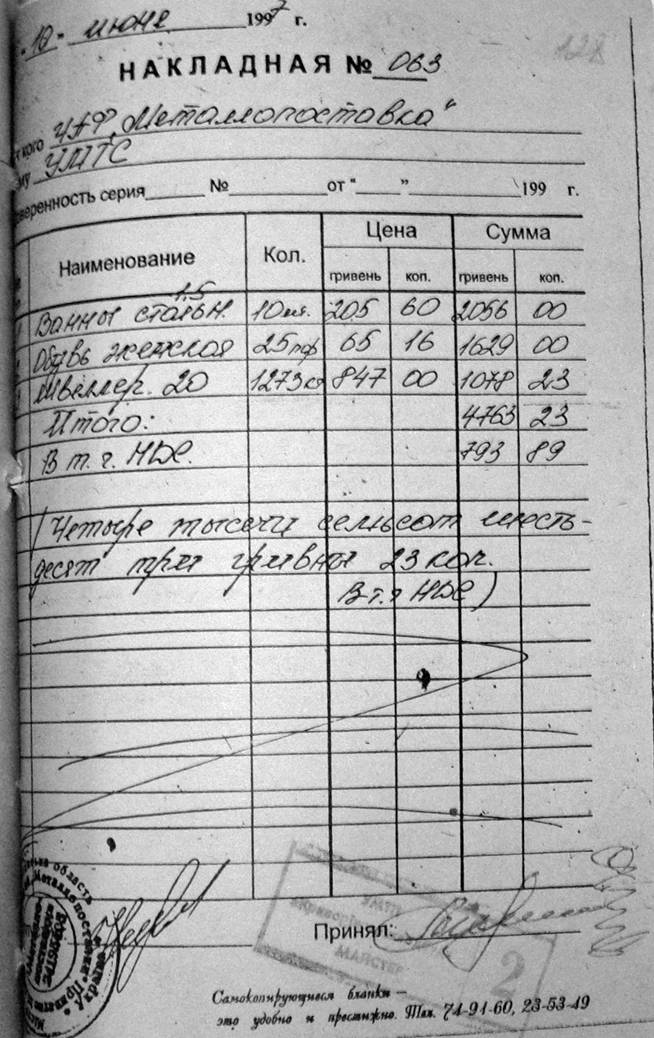 "10" июня 1997 г.
128
НАКЛАДНАЯ № 063
кого ЧПФ "Металлопоставка"
му УМТС
веренность серия № от " " 199 г.
Наименование Кол. Цена Сумма
гривень коп. гривень коп.
1,5
Ванны стальн. 10шт. 205 60 2056 00
Обувь женская 25пар 65 16 1629 00
Швеллер. 20 1273кг 847 00 1078 23
Итого: 4763 23
В т. ч. НДС. 793 89
(Четыре тысячи семьсот шесть-
десят три гривны 23 коп.
В т. ч НДС)
область
Металлопоставка
УМТС
МАЙСТЕР
2
Принял:
Самокопирующиеся бланки —
это удобно и престижно. Тел. 74-91-60, 23-53-49